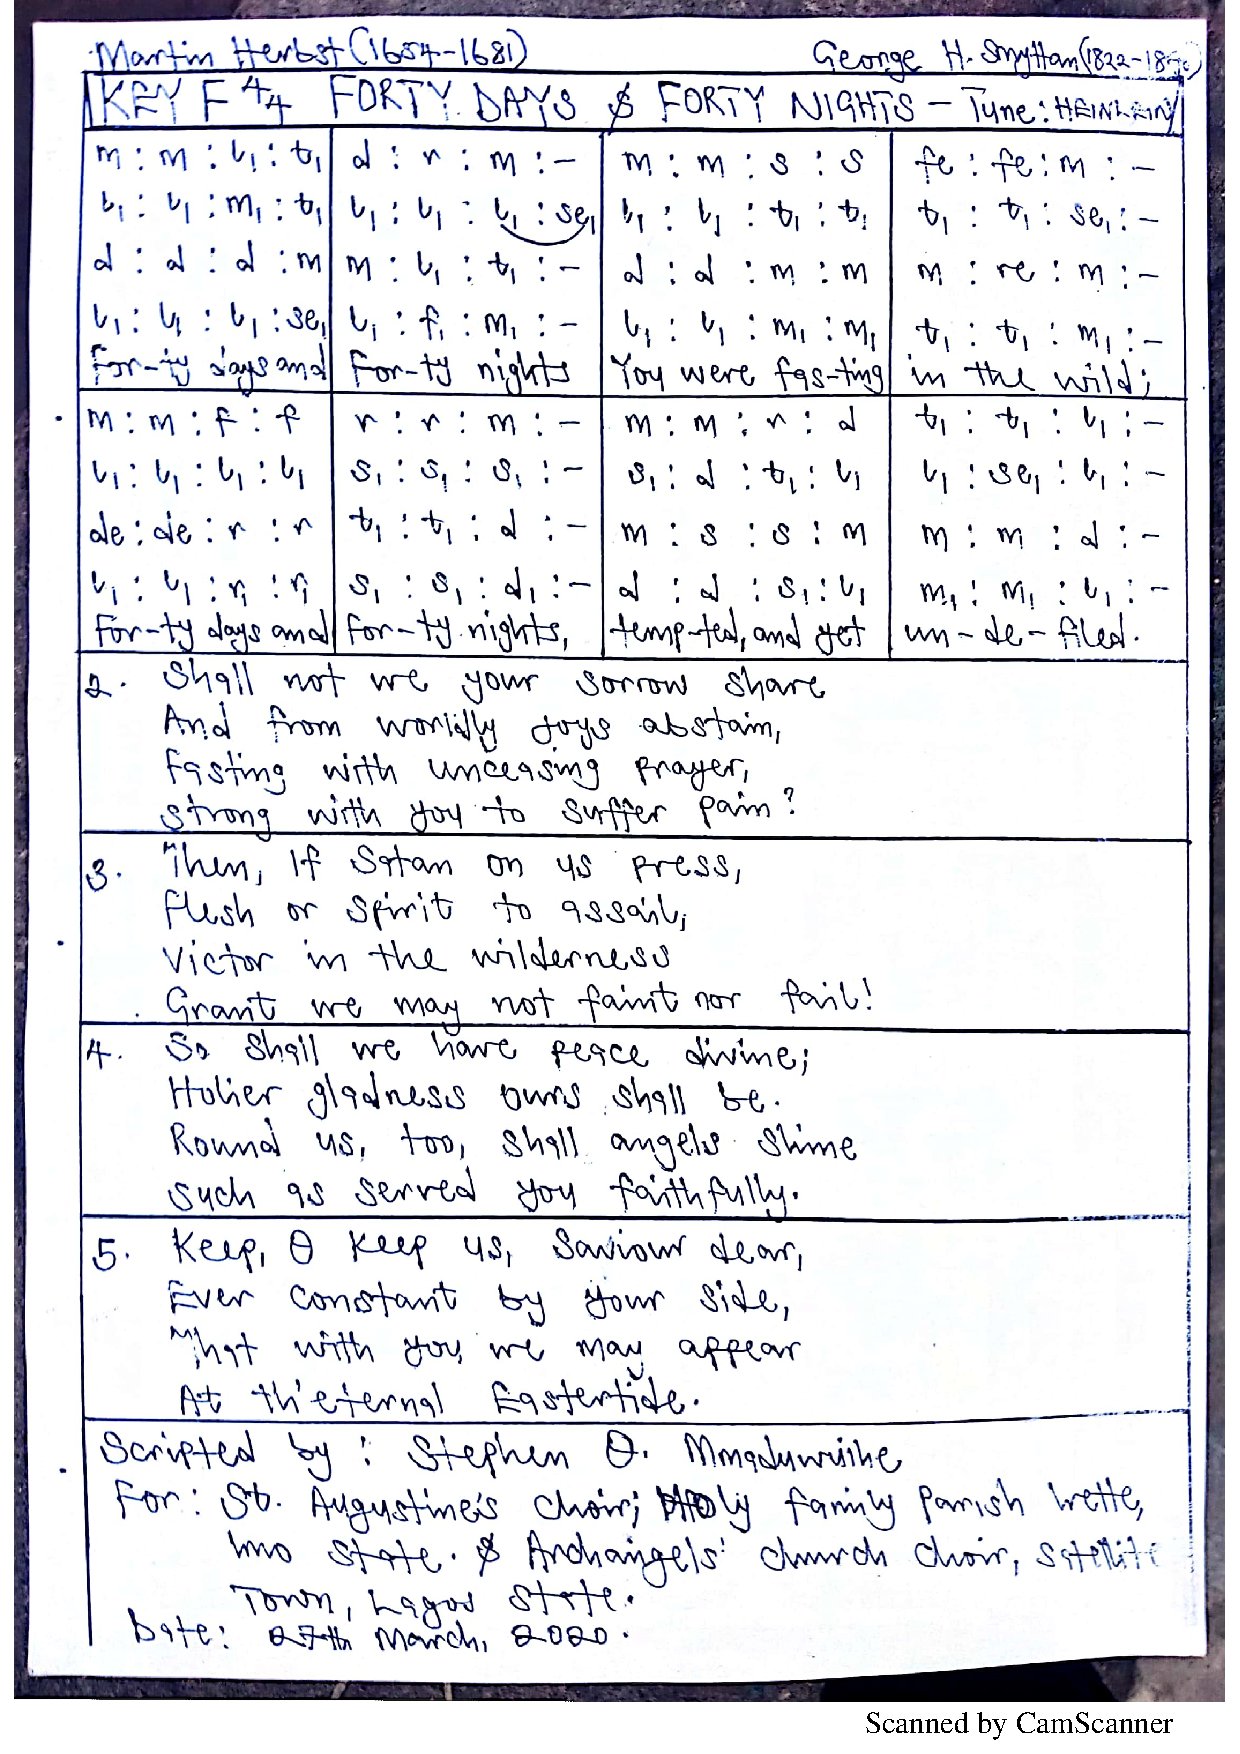 Martin Herbst (1654-1681) George H. Smyttan (1822-18
KEY F 4/4 FORTY DAYS & FORTY NIGHTS - Tune: HEINLEIN
m : m : l₁ : t₁ | d : r : m : - | m : m : s : s | fe : fe : m : -
l₁ : l₁ : m₁ : t₁ | l₁ : l₁ : l₁ : se₁ | l₁ : l₁ : t₁ : t₁ | t₁ : t₁ : se₁ : -
d : d : d : m | m : l₁ : t₁ : - | d : d : m : m | m : re : m : -
l₁ : l₁ : l₁ : se₁ | l₁ : f₁ : m₁ : - | l₁ : l₁ : m₁ : m₁ | t₁ : t₁ : m₁ : -
For-ty days and | for-ty nights | You were fas-ting | in the wild;
m : m : f : f | r : r : m : - | m : m : r : d | t₁ : t₁ : l₁ : -
l₁ : l₁ : l₁ : l₁ | s₁ : s₁ : s₁ : - | s₁ : d : t₁ : l₁ | l₁ : se₁ : l₁ : -
de : de : r : r | t₁ : t₁ : d : - | m : s : s : m | m : m : d : -
l₁ : l₁ : r₁ : r₁ | s₁ : s₁ : d₁ : - | d : d : s₁ : l₁ | m₁ : m₁ : l₁ : -
For-ty days and | for-ty nights, | temp-ted, and yet | un-de-filed.
2. Shall not we your sorrow share
And from worldly joys abstain,
Fasting with unceasing prayer,
Strong with you to suffer pain?
3. Then, If Satan on us press,
Flesh or spirit to assail,
Victor in the wilderness
Grant we may not faint nor fail!
4. So shall we have peace divine;
Holier gladness ours shall be.
Round us, too, shall angels shine
Such as served you faithfully.
5. Keep, O keep us, Saviour dear,
Ever constant by your side,
That with you we may appear
At th'eternal Eastertide.
Scripted by : Stephen O. Mmaduwuihe
For: St. Augustine's choir; Holy family Parish Irette,
Imo State. & Archangels' church choir, Satellite
Town, Lagos State.
Date: 27th March, 2020.
Scanned by CamScanner